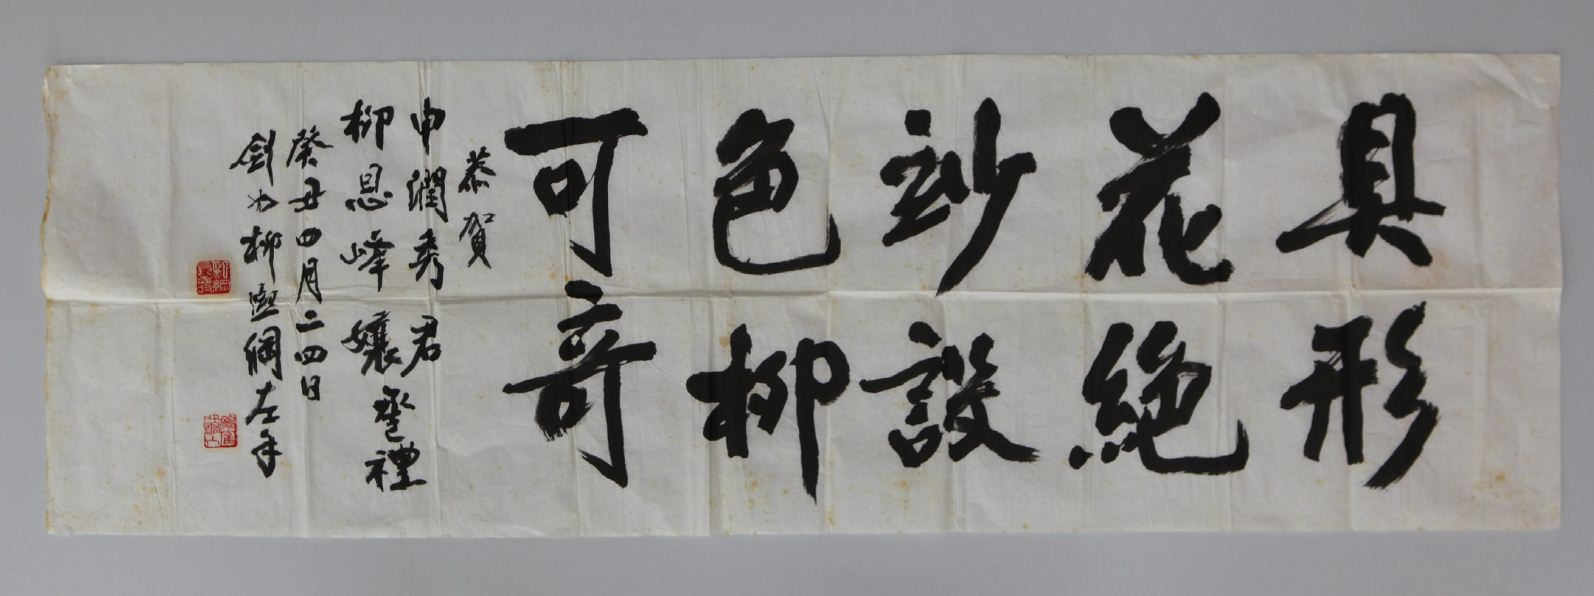 具形
花絶
妙設
色柳
可奇
恭賀
申潤秀君
柳恩峰孃 華禮
癸丑四月二四日
劍如柳熙綱左手